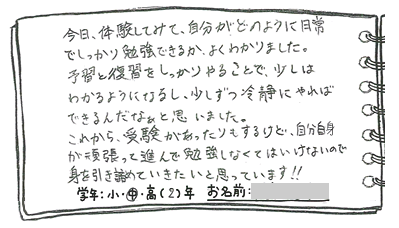 今日、体験してみて、自分がどのように日常
でしっかり勉強できるか、よくわかりました。
予習と復習をしっかりやることで、少しは
わかるようになるし、少しずつ冷静にやれば
できるんだなぁと思いました。
これから、受験があったりもするけど、自分自身
が頑張って進んで勉強しなくてはいけないので
身を引き諦めていきたいと思っています!!
学年:小・中・高(2)年 お名前: